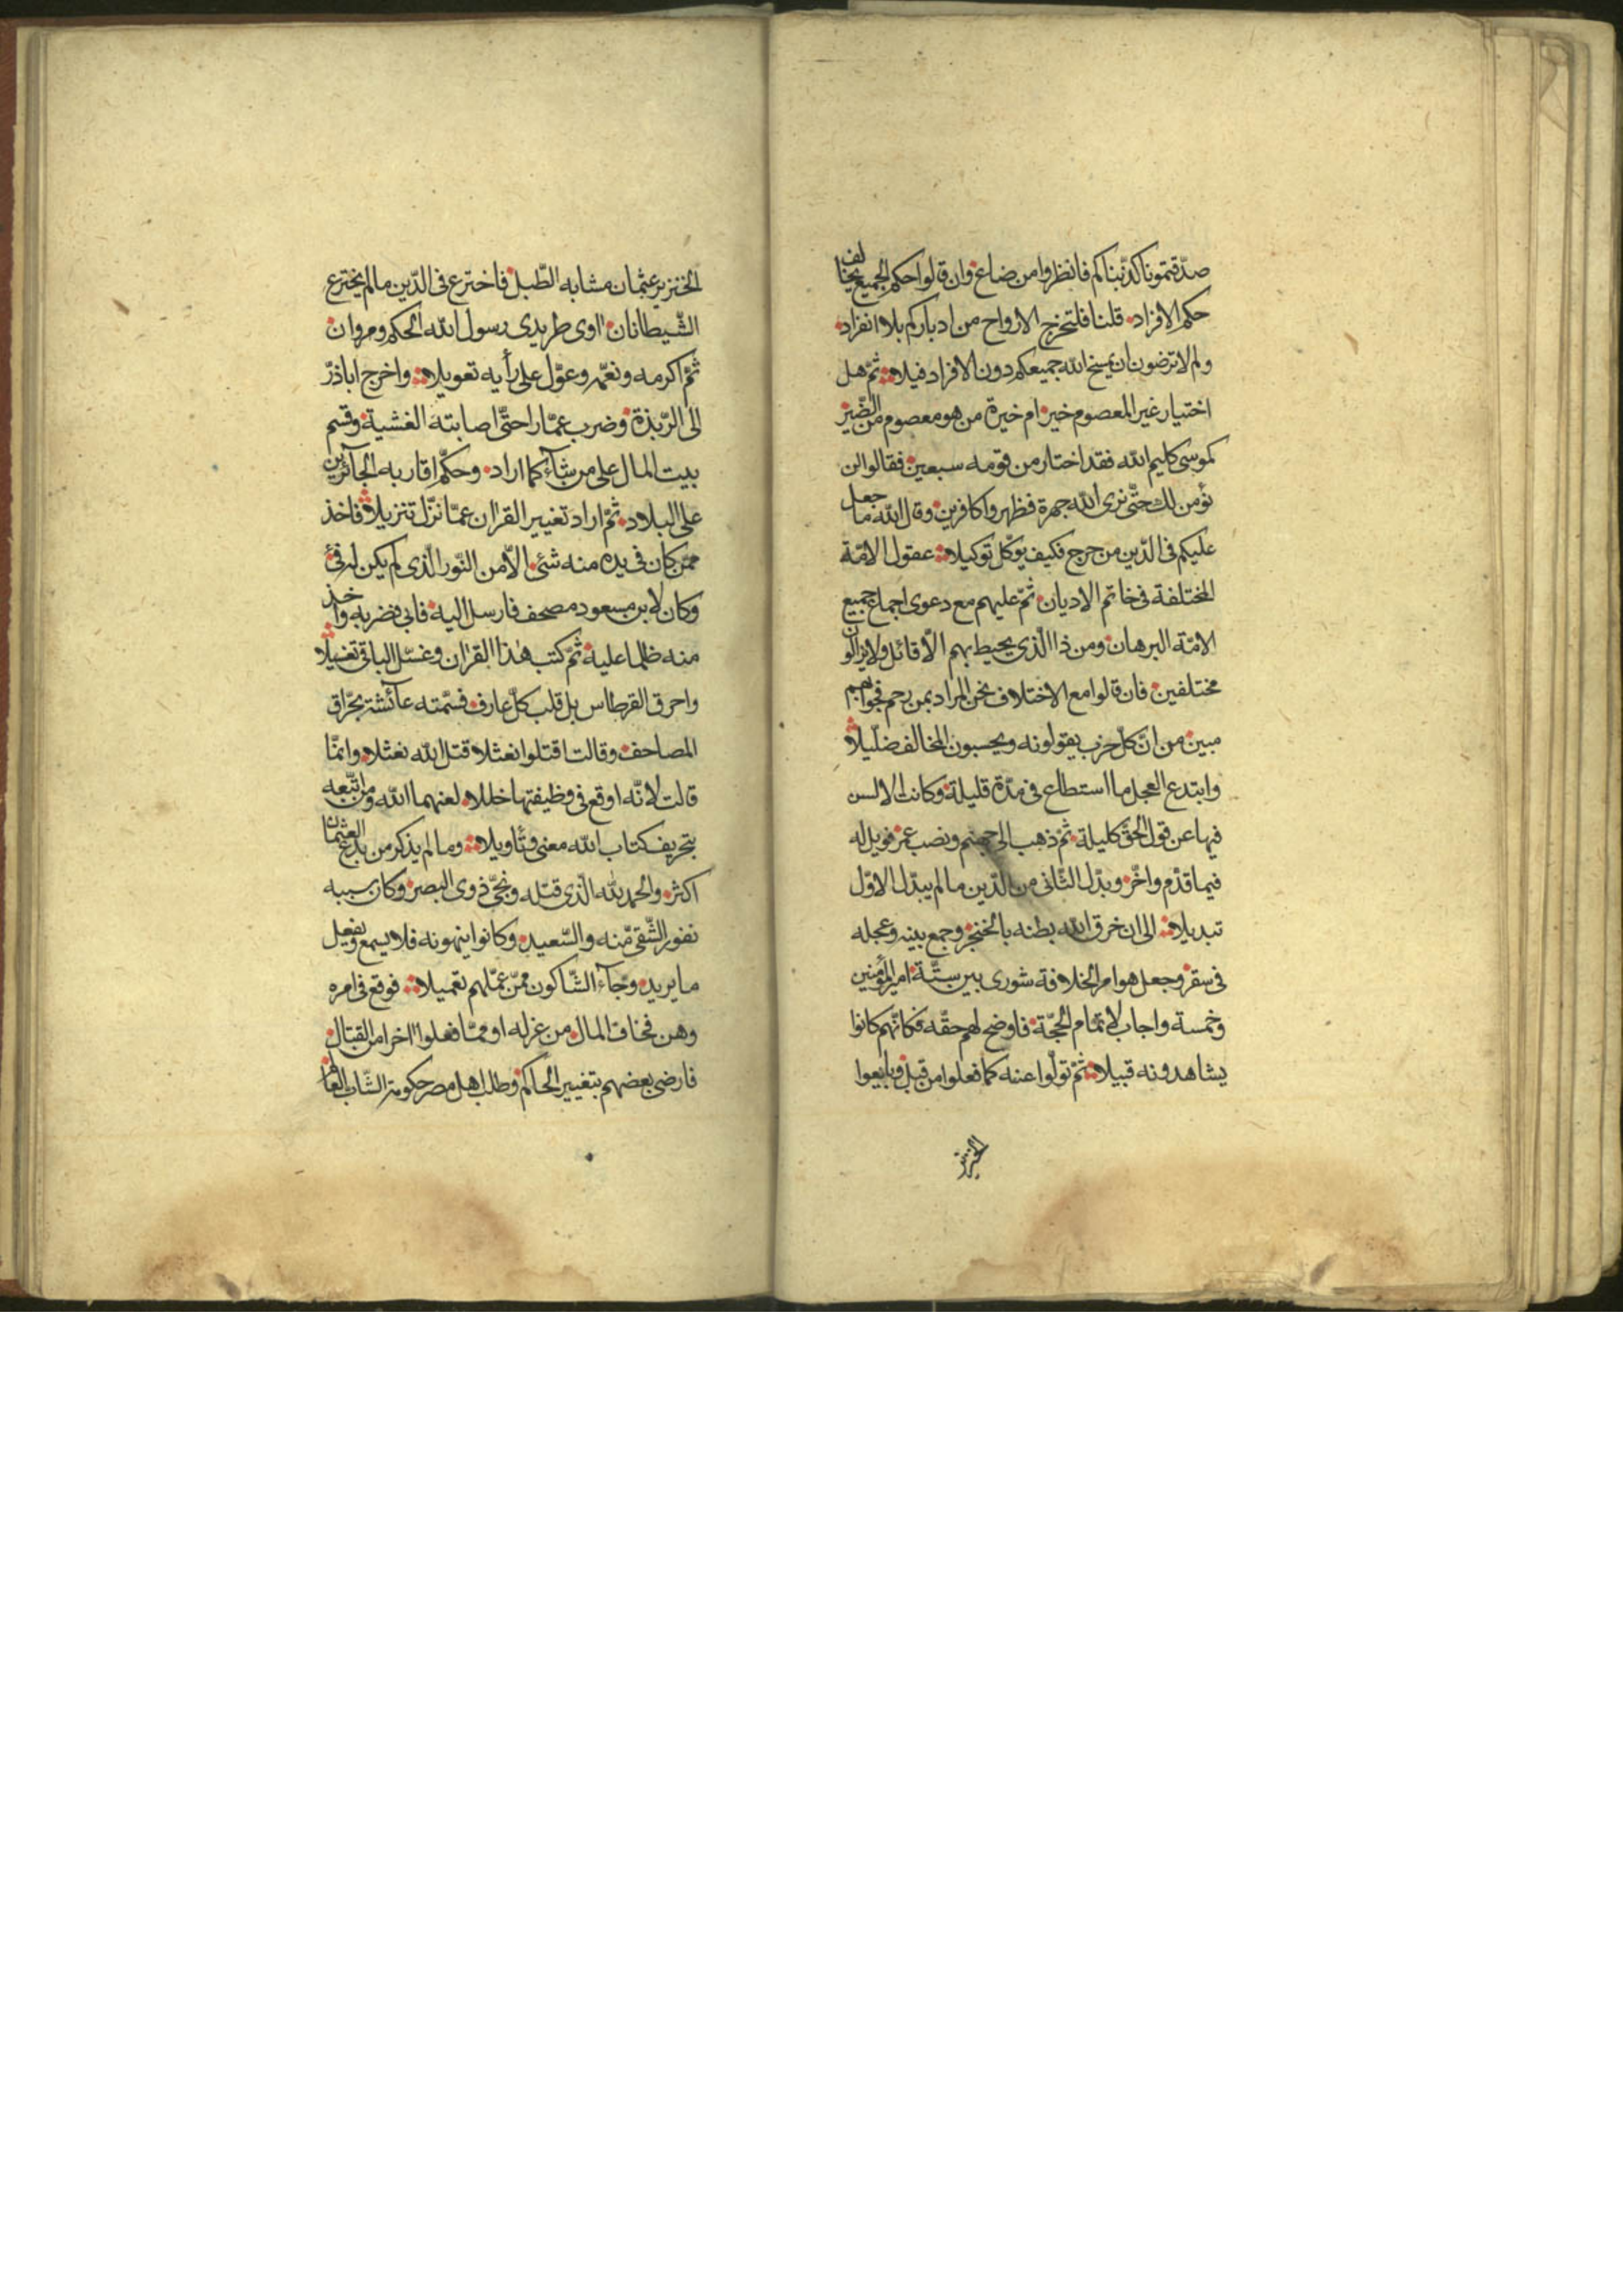 صدّقتمونا كذّبناكم فانظروا من ضاع وان قالوا حكم الجميع يخالف
حكم الافراد قلنا فلتخرج الارواح من ادباركم بلا انفراد
ولم لا ترضون ان يمسخ الله جميعكم دون الافراد فيلا ثمّ هل
اختيار غير المعصوم خير ام خيرة من هو معصوم من الضّير
كموسى كليم الله فقد اختار من قومه سبعين فقالوا لن
نؤمن لك حتّى نرى الله جهرة فظهروا كافرين وقال الله ما جعل
عليكم فى الدّين من حرج فكيف يوكّل توكيلا عقول الامّة
المختلفة فى خاتم الاديان ثمّ عليهم مع دعوى اجماع جميع
الامّة البرهان ومن ذا الّذى يحيط بهم الّا قائل ولا يزالون
مختلفين فان قالوا مع الاختلاف نحن المراد بمن رحم فجوابهم
مبين من انّ كلّ حزب يقولونه ويحسبون المخالف ضلّيلا
وابتدع العجل ما استطاع فى مدّة قليلة وكانت الالسن
فيها عن قول الحقّ كليلة ثمّ ذهب الى جهنّم ونصب عمر فويل له
فيما قدّم واخّر وبدّل الثّانى من الدّين ما لم يبدّل الاوّل
تبديلا الى ان خرق الله بطنه بالخنجر وجمع بينه وعجله
فى سقر وجعل هو امر الخلافة شورى بين ستّة امير المؤمنين
وخمسة واجاب لاتمام الحجّة فاوضح لهم حقّه فكانّهم كانوا
يشاهدونه قبيلا ثمّ تولّوا عنه كما فعلوا من قبل وبايعوا
الخنزير
الخنزير عثمان مشابه الطّبل فاخترع فى الدّين ما لم يخترع
الشّيطانان اوى طريدى رسول الله الحكم ومروان
ثمّ اكرمه ونعّمه وعوّل على رأيه تعويلا واخرج اباذرّ
الى الرّبذة وضرب عمّارا حتّى اصابته الغشية وقسم
بيت المال على من شآء كما اراد وحكّم اقاربه الجآئرين
على البلاد ثمّ اراد تغيير القران عمّا نزّل تنزيلا فاخذ
ممّن كان فى يده منه شئ الّا من النّور الّذى لم يكن له فئ
وكان لابن مسعود مصحف فارسل اليه فابى فضربه واخذ
منه ظلما عليه ثمّ كتب هذا القران وغسّل الباقى تغسيلا
واحرق القرطاس بل قلب كلّ عارف فسمّته عآئشة بحرّاق
المصاحف وقالت اقتلوا نعثلا قتل الله نعثلا وانّما
قالت لانّه اوقع فى وظيفتها خللا لعنهما الله ومن اتّبعه
بتحريف كتاب الله معنى وتأويلا وما لم يذكر من بدع العثمان
اكثر والحمد لله الّذى قتله ونجّى ذوى البصر وكان سببه
نفور الشّقى منه والسّعيد وكانوا ينهونه فلا يسمع ويفعل
ما يريد وجآء الشّاكون ممّن عمّلهم تعميلا فوقع فى امره
وهن فخاف المال من عزله او ممّا فعلوا اخرا من القتال
فارضى بعضهم بتغيير الحاكم وطلب اهل مصر حكومة الشّاب